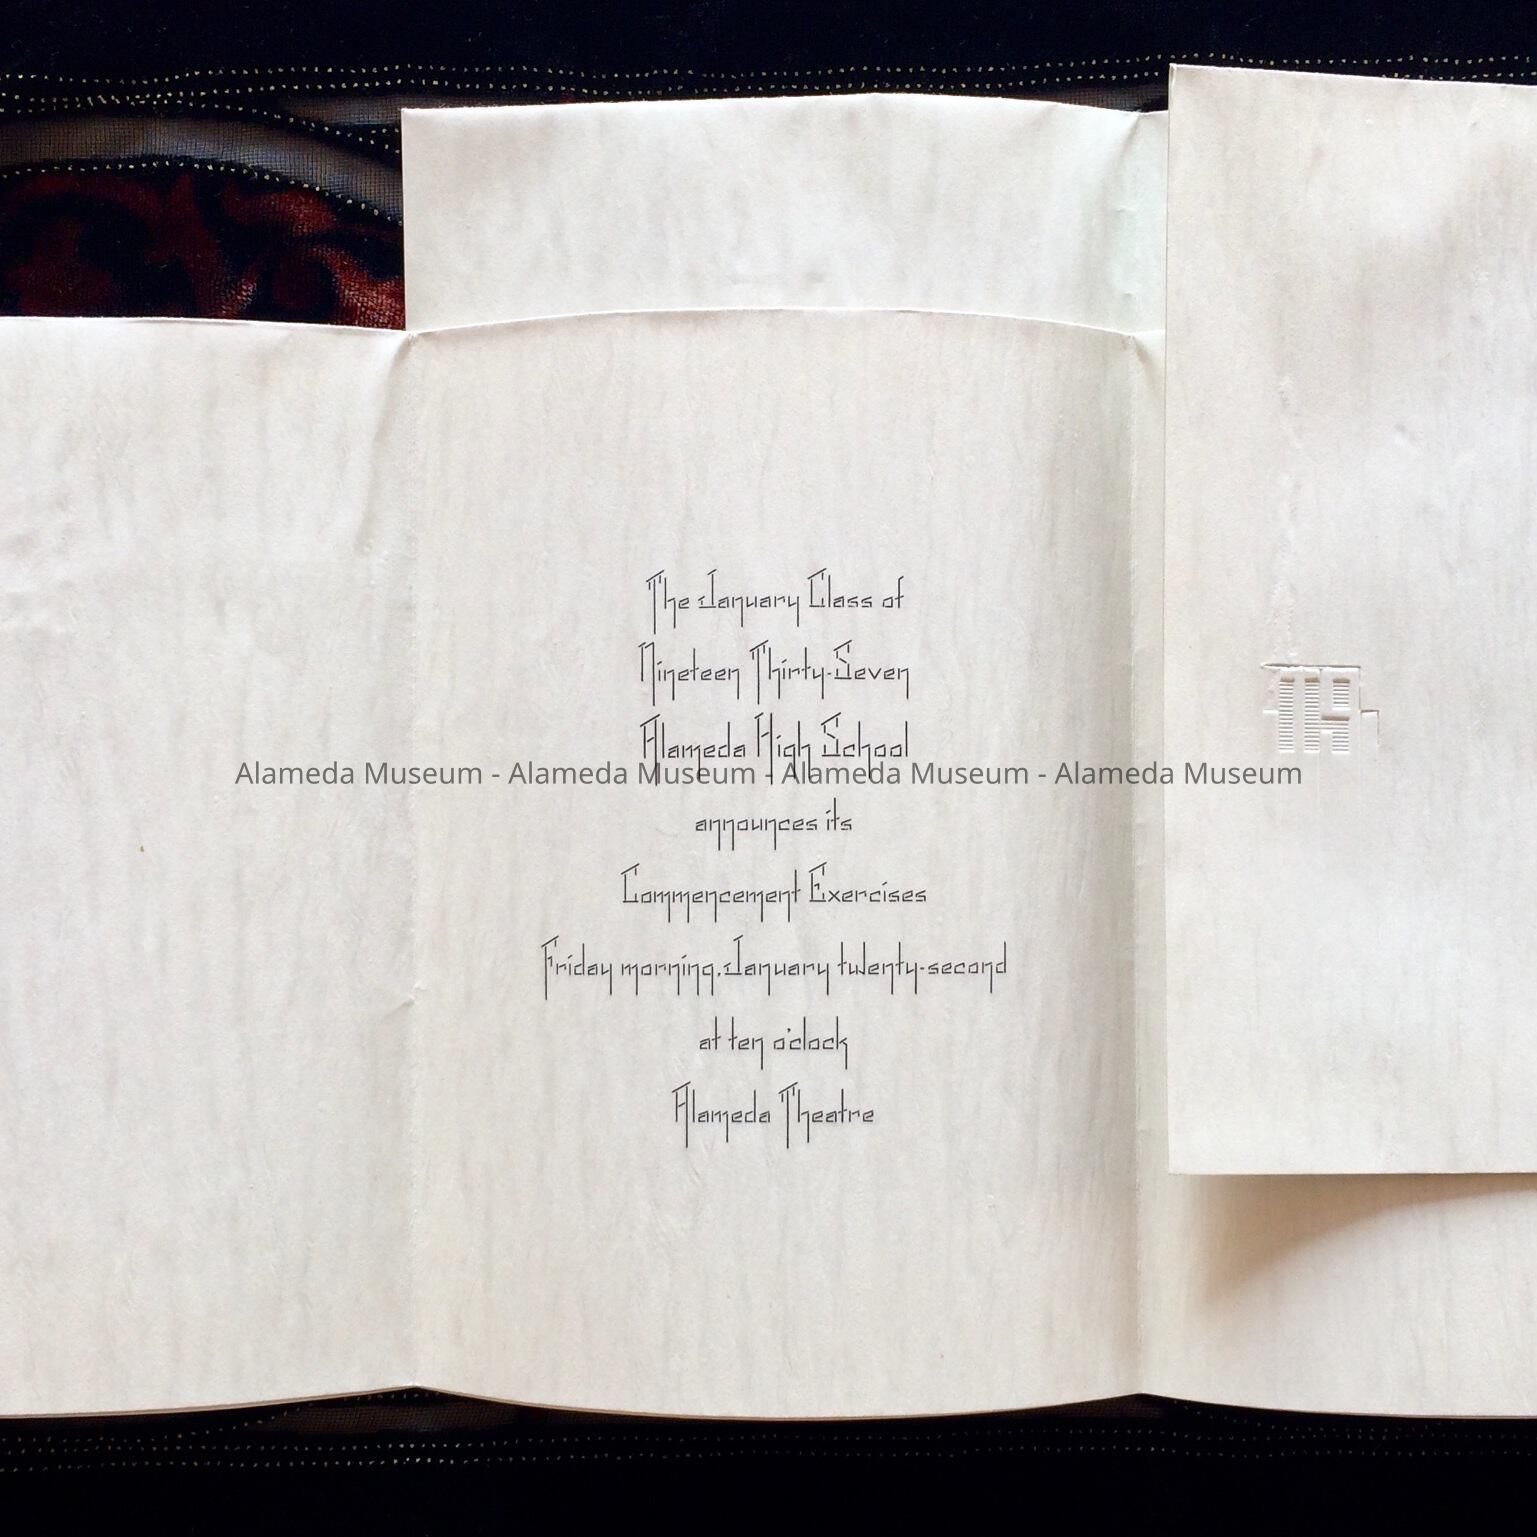 The January Class of
Nineteen Thirty-Seven
Alameda High School
Alameda Museum - Alameda Museum - Alameda Museum - Alameda Museum
announces its
Commencement Exercises
Friday morning, January twenty-second
at ten o'clock
Alameda Theatre